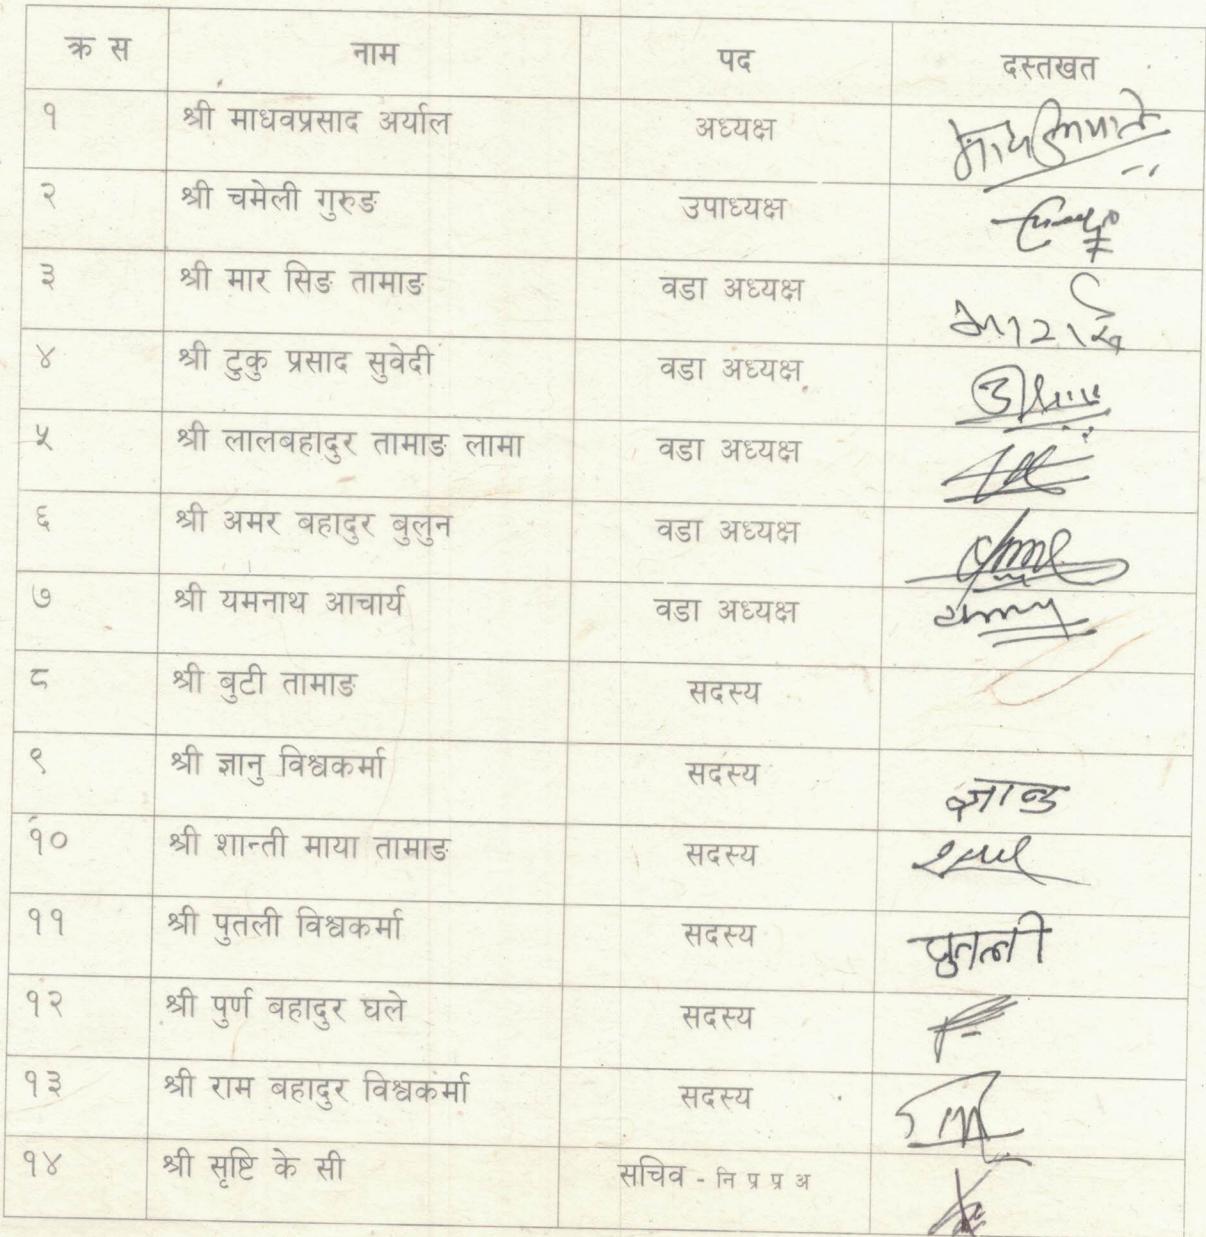 क्र स नाम पद दस्तखत
१ श्री माधवप्रसाद अर्याल अध्यक्ष
२ श्री चमेली गुरुङ उपाध्यक्ष
३ श्री मार सिङ तामाङ वडा अध्यक्ष
४ श्री टुकु प्रसाद सुवेदी वडा अध्यक्ष
५ श्री लालबहादुर तामाङ लामा वडा अध्यक्ष
६ श्री अमर बहादुर बुलुन वडा अध्यक्ष
७ श्री यमनाथ आचार्य वडा अध्यक्ष
८ श्री बुटी तामाङ सदस्य
९ श्री ज्ञानु विश्वकर्मा सदस्य
१० श्री शान्ती माया तामाङ सदस्य
११ श्री पुतली विश्वकर्मा सदस्य पुतली
१२ श्री पुर्ण बहादुर घले सदस्य
१३ श्री राम बहादुर विश्वकर्मा सदस्य
१४ श्री सृष्टि के सी सचिव - नि प्र प्र अ